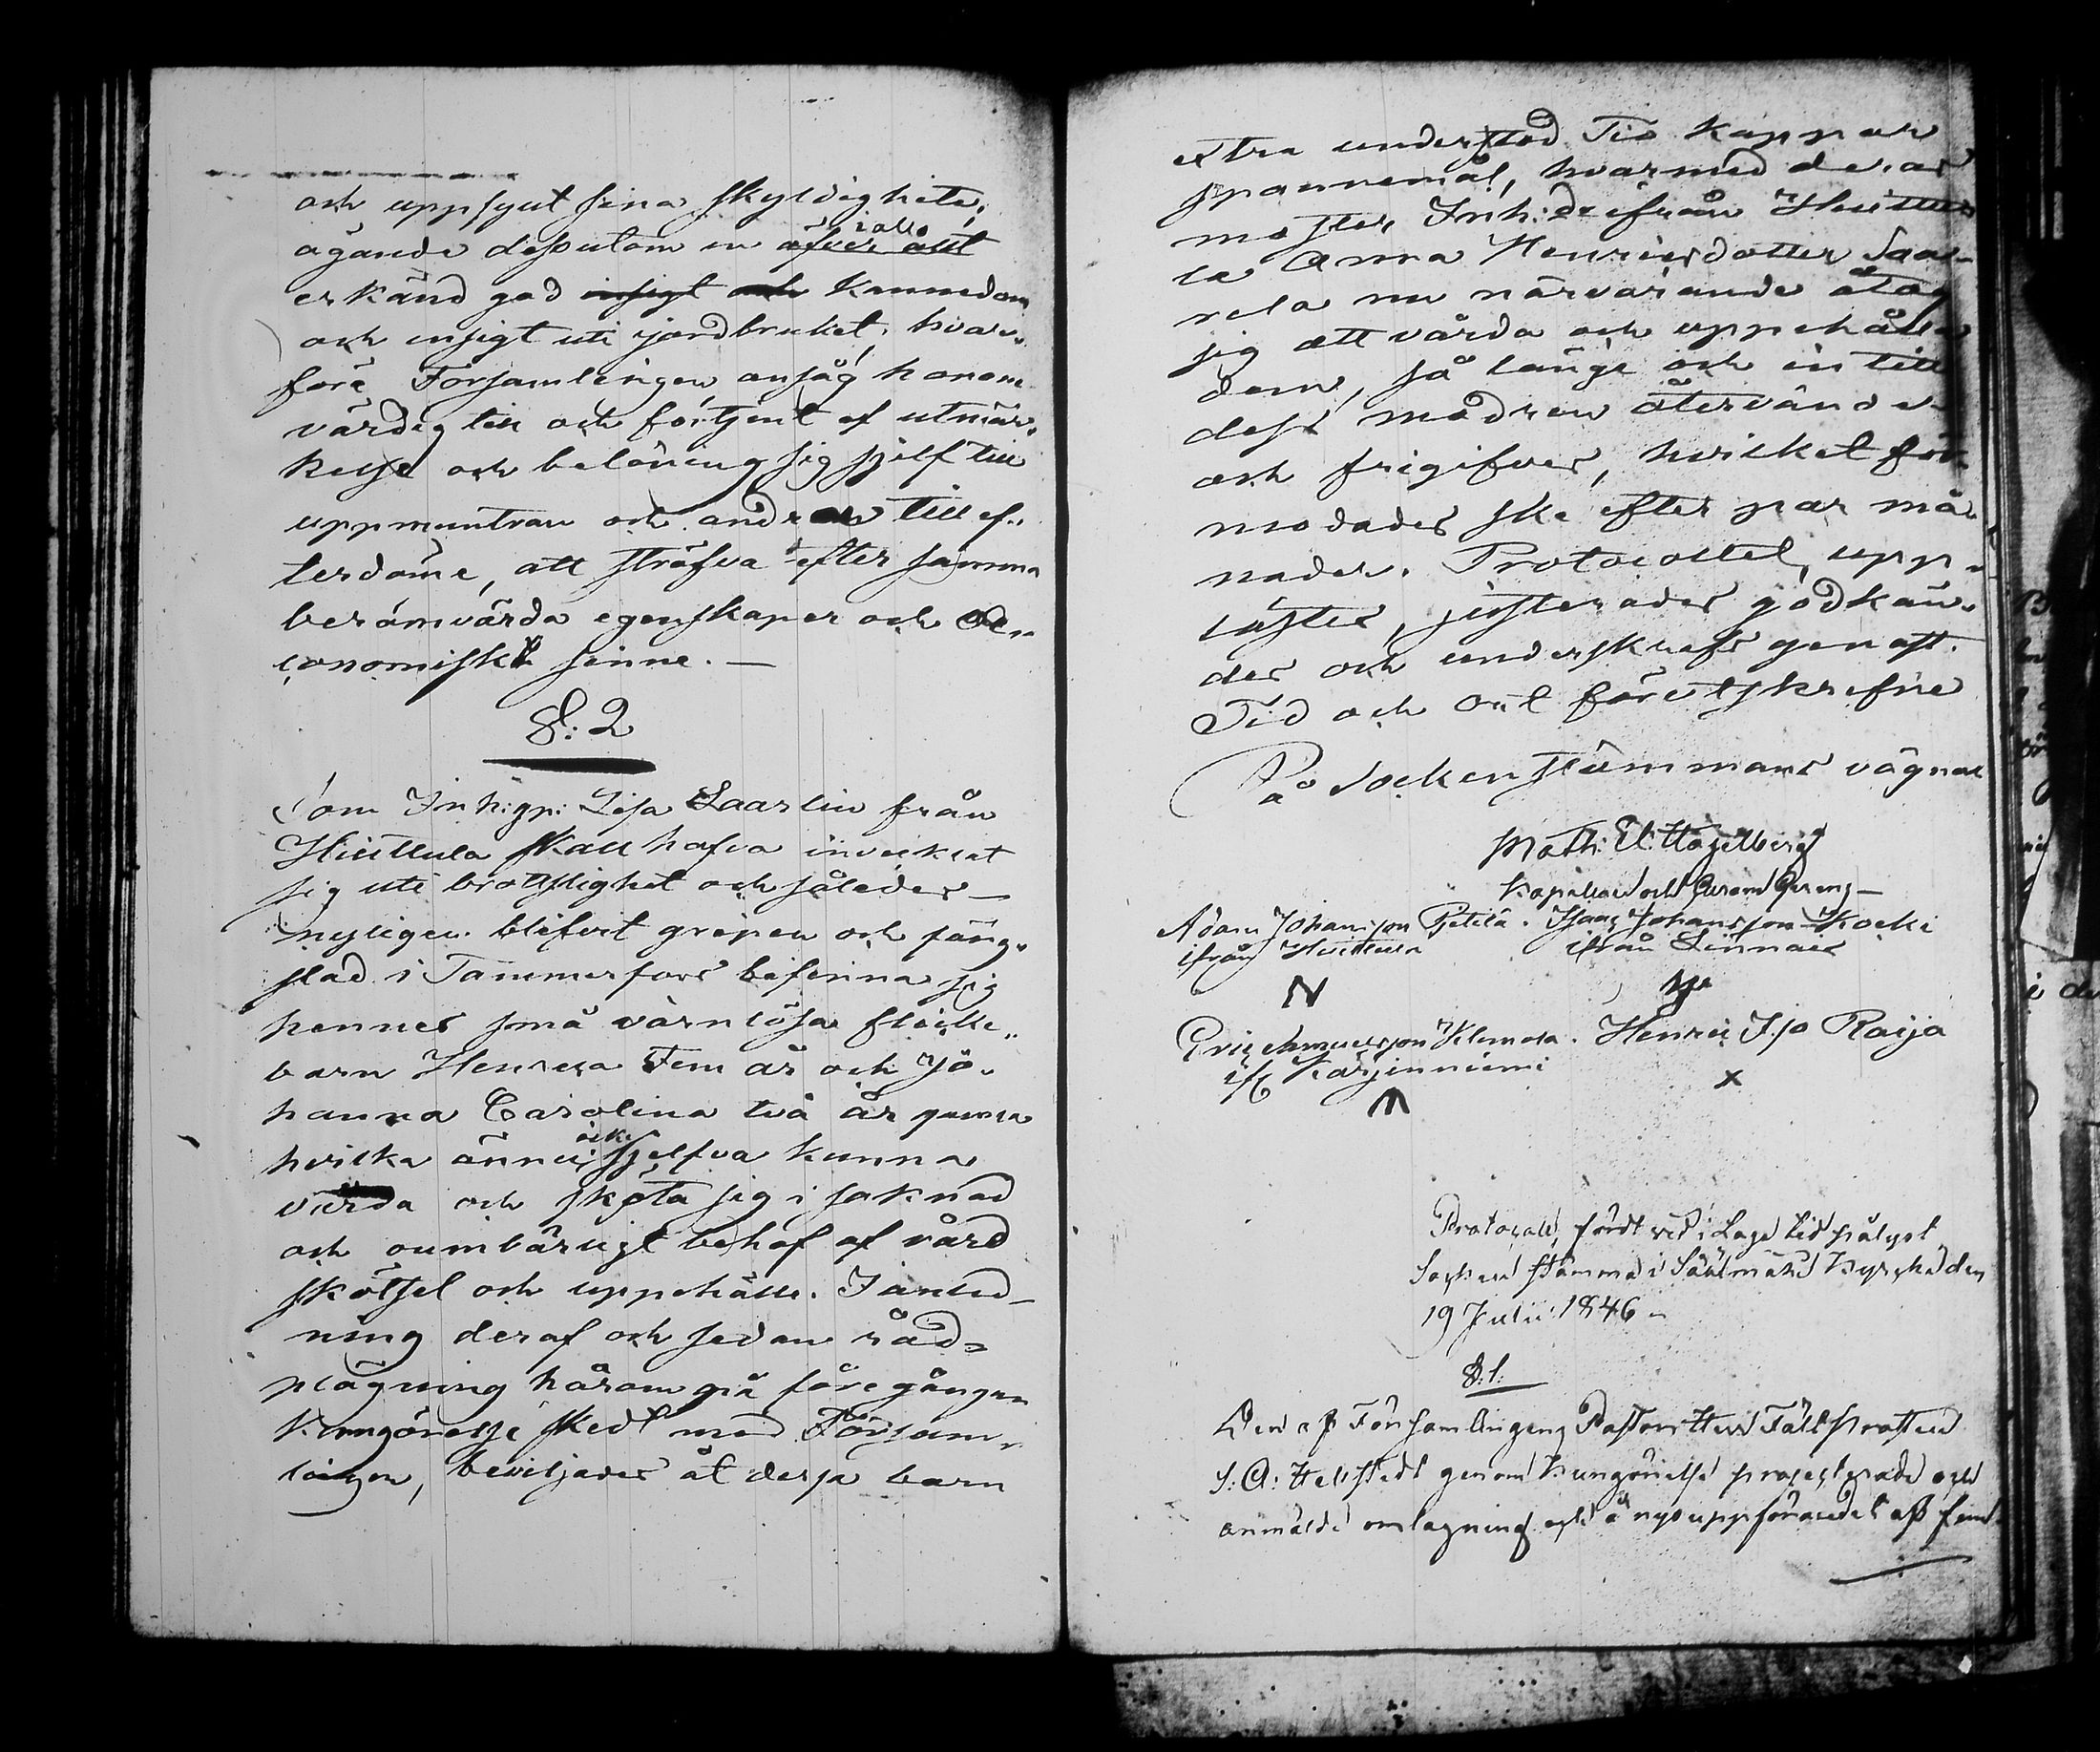 och uppfyllt sina skyldigheter,
ägande dessutom en i allo öfver allt
erkänd god insigt och kännedom
och insigt uti jordbruket; hvar„
före Församlingen ansåg honom
värdig till och förtjent af utmär„
kelse och belöning sig sjelf till
uppmuntran och androm till ef„
terdöme, att sträfva efter samma
berömvärda egenskaper och oe„
conomiskt sinne. —
§: 2
Som Inh:gn: Lisa Saarlin från
Huittula skall hafva invicklat
sig uti brottslighet och således —
nyligen blifvit gripen och fäng„
slad i Tammerfors befinna sig
hennes små värnlösa flicke„
barn Henrica Fem år och Jo„
hanna Carolina två år gamla
hvilka ännu icke sjelfva kunna
vårda och sköta sig i saknad
och oumbärligt behof af vård
skötsel och uppehälle. I anled„
ning deraf och sedan råd„
plägning härom på föregången
kungörelse skedt med Försam„
lingen, beviljades åt dessa barn
extra understöd Tio kappar
spannemål, hvarmed deras
moster, Inh: ifrån Huittu
la Anna Henricsdotter Saa„
rela nu närvarande åtog
sig att vårda och uppehålla
dem, så länge och in till
dess modren återvänder
och frigifves, hvilket för„
modades ske efter par må„
nader. Protocollet, upp„
lästes, justerades godkän„
des och underskrefs genast.
Tid och ort föreskrefne
På Sockenstämmans vägnar
Math: El: Hagelberg
Kapellan och
Adam Johansson Pietilä. Isaac Johansson Kocki
ifrån Huittula ifrån Linnais
N
Eric Klemola. Henric J:so Raija
if: Karjenniemi x
Protocoll, fördt vid i Laga tid pålyst
Socken stämma i Säälmäki Kyrcka den
19 Julii 1846 –
§: 1:
Den af Församlingens Pastor Herr Fältprosten
S: A: Hellstedt genom kungörelse projecterade och
anmälde omlagning och å nyo uppförandet af fem